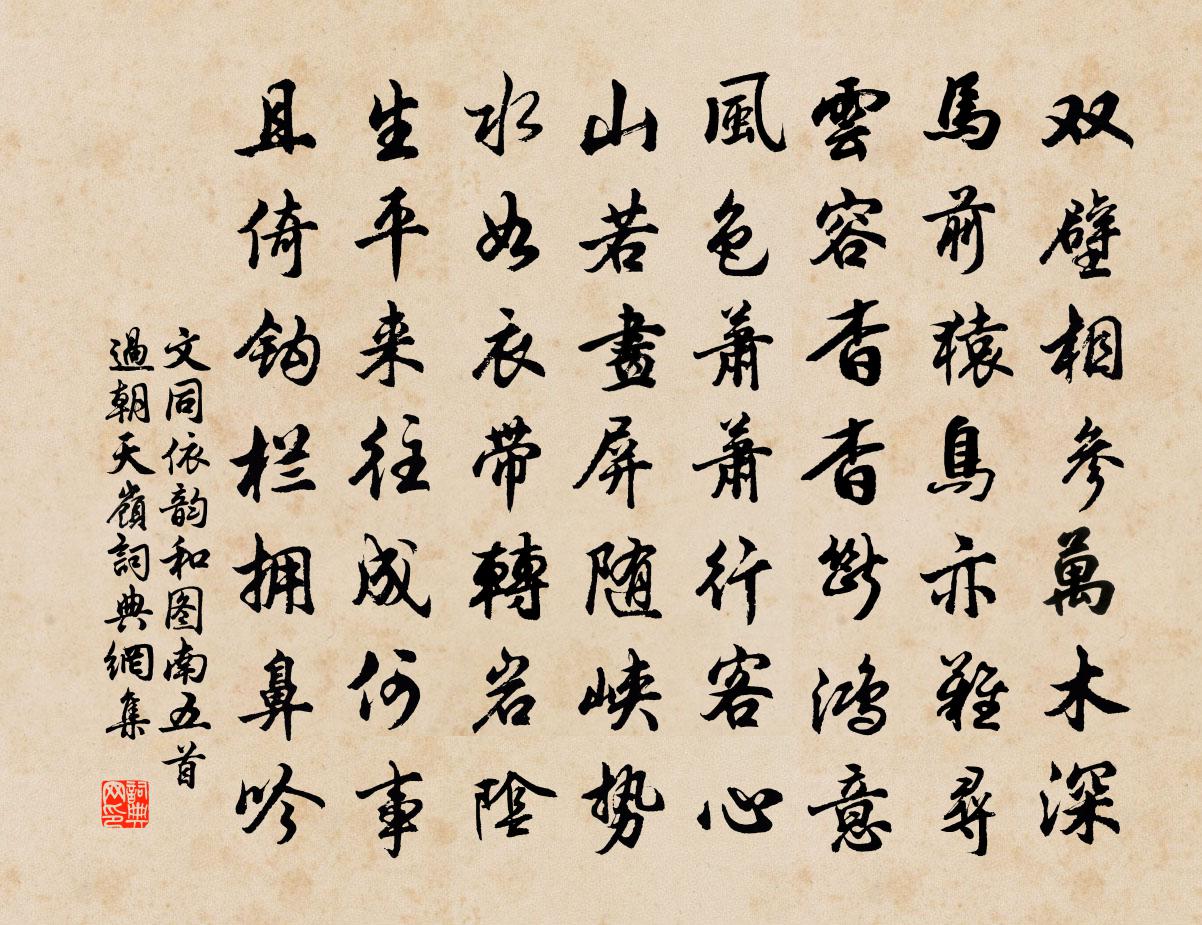 双壁相參萬木深
馬前猿鳥亦難尋
雲容杳杳斷鴻意
風色蕭蕭行客心
山若畫屏随峡势
水如衣带轉岩陰
生平来往成何事
且倚钩栏拥鼻吟
文同依韵和图南五首
過朝天嶺詞典網集
詞典
网印